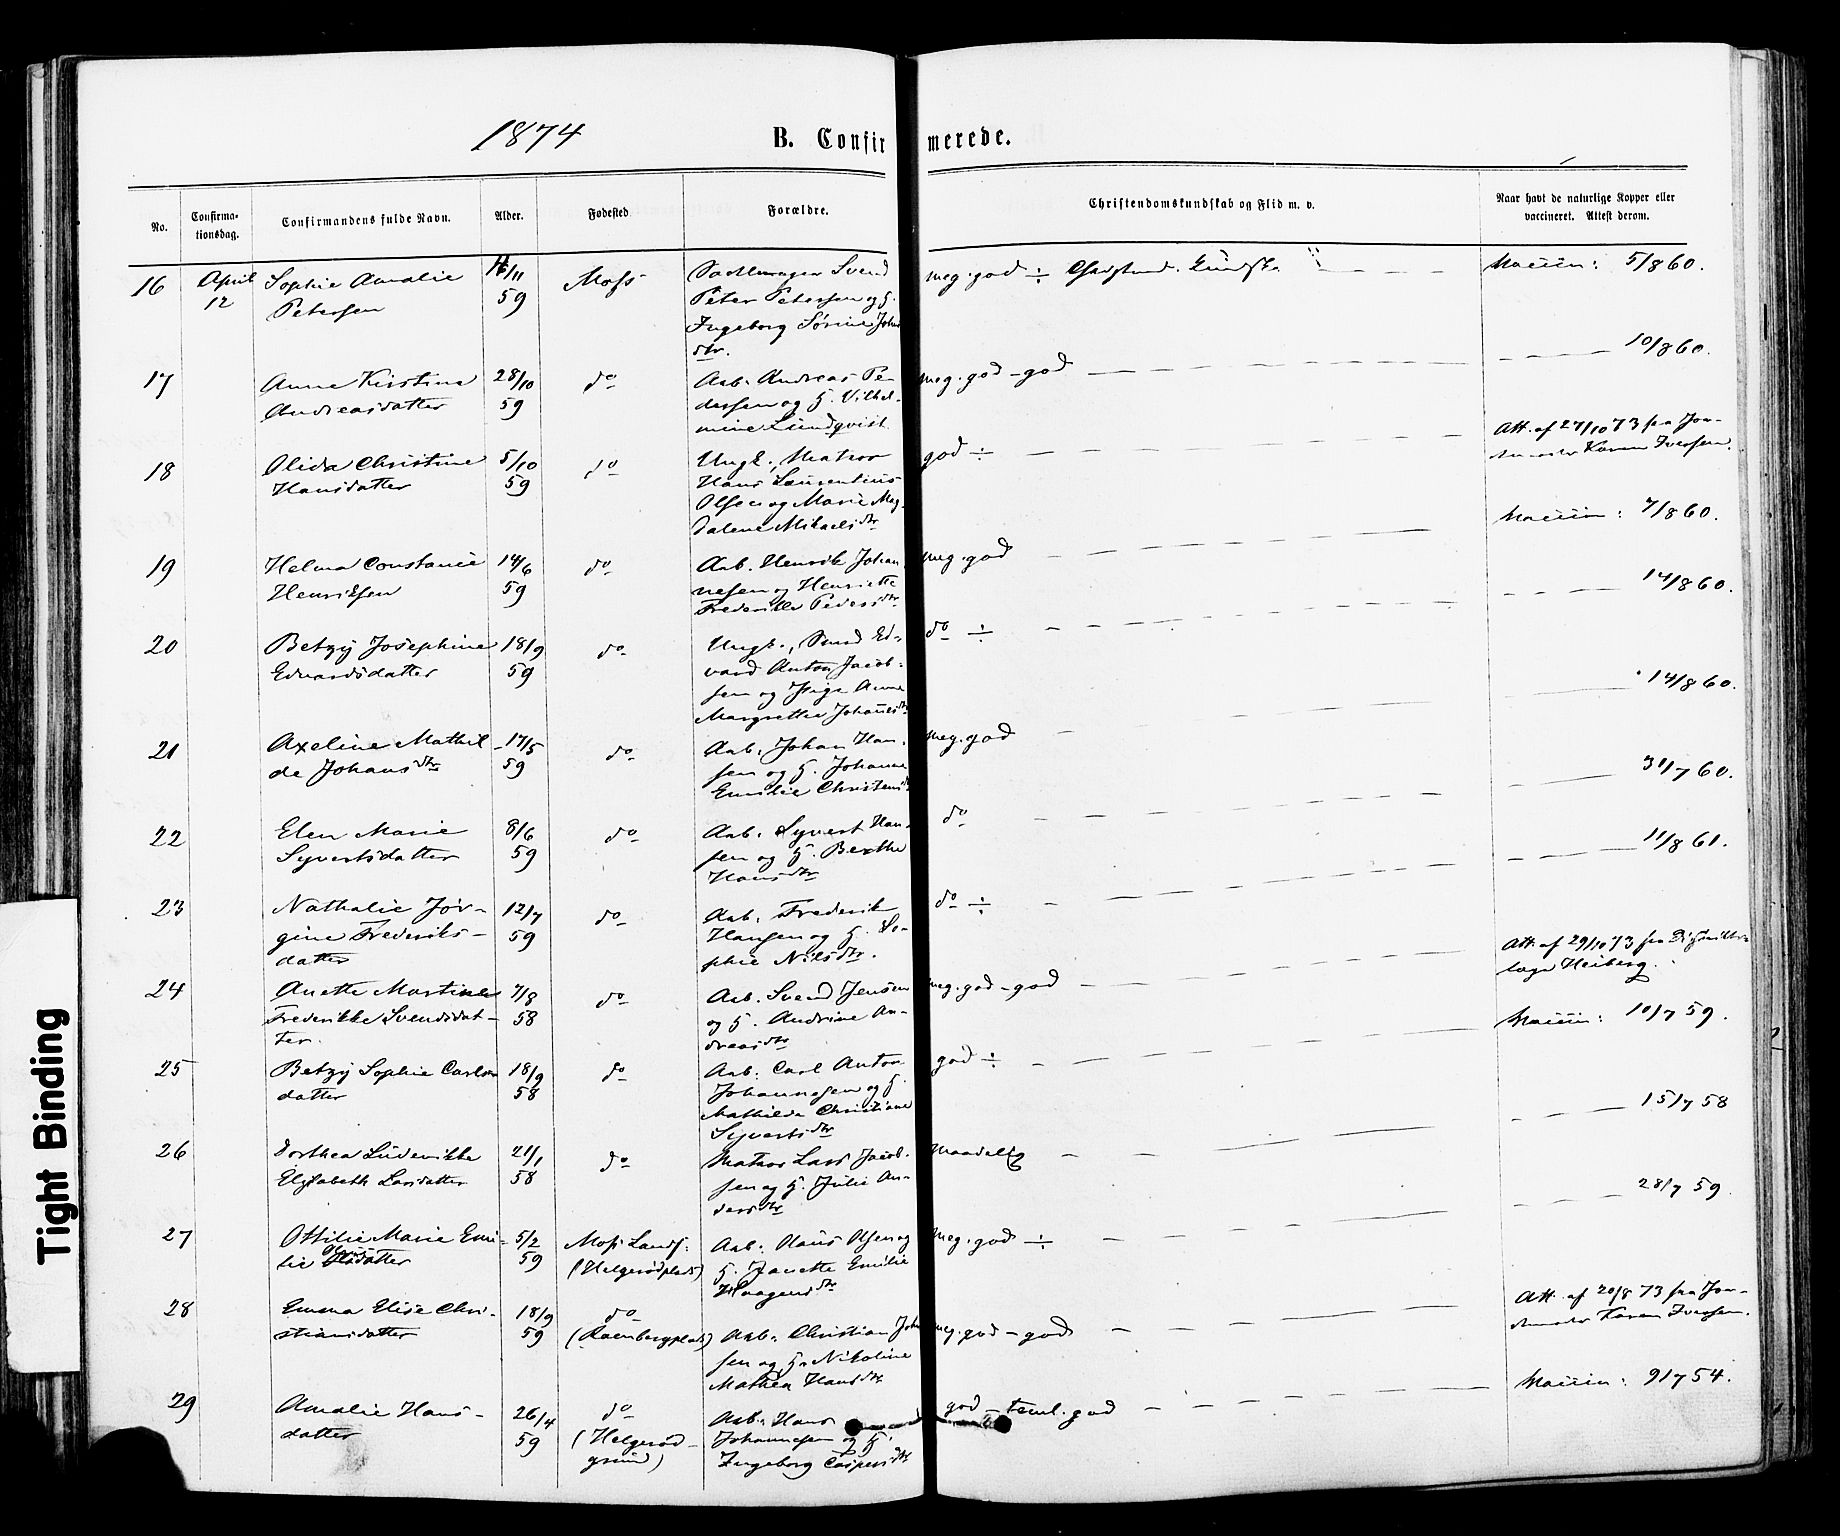 1874
B. Confirmerede.
No.
Confirma-
tionsdag.
Confirmandens fulde Navn.
Alder.
Fødested.
Forældre.
Christendomskundskab og Flid m. v.
Naar havt de naturlige Kopper eller
vaccineret. Attest derom.
16 April 12
Sophie Amalie
Petersen
/11 59
Moss
Sadelmager Svend
Peter Petersen og H.
Ingeborg Sørine Johns
dtr.
meg. god ÷
Vaccin: 5/8 60.
17
Anne Kirstine
Andreasdatter
28/10 59
do
Arb. Andreas Pe-
dersen og H. Vilhel-
mine Lundqvist
meg. god - god
10/8 60.
18
Olida Christine
Hansdatter
5/10 59
do
Ungk., Matros
Hans Laurentius
Olsen og Marie Mag-
dalene Mikaelsdtr
god ÷
Att. af 27/10 73 fra Jor-
demoder Karen Iversen.
19
Helma Constance
Henriksen
14/6 59
do
Arb. Henrik Johan
nesen og Henriette
Frederikke Pedersdtr
meg. god
Vaccin: 7/8 60.
20
Betzy Josephine
Edvardsdatter
18/9 59
do
Ungk., Smed Ed-
vard Anton Jacob-
sen og Pige Anne
Margrethe Johansdtr
do ÷
14/8 60.
21
Axeline Mathil-
de Johansdtr
17/5 59
do
Arb. Johan Han-
sen og H. Johanne
Emilie Christensd
meg. god
14/8 60.
22
Elen Marie
Syvertsdatter
8/6 59
do
Arb. Syvert Han-
sen og H. Berthe
Hansdtr
do
31/7 60.
23
Nathalie Jør-
gine Frederiks-
datter
12/7 59
do
Arb. Frederik
Hansen og H. So-
phie Nilsdtr.
do ÷
11/8 61.
24
Anette Martine
Frederikke Svendsdat-
ter.
7/8 58
do
Arb. Svend Jensen
og H. Andrine An-
dreasdtr
meg. god - god
Att. af 29/10 73 fra Distrikts-
læge Heiberg.
25
Betzy Sophie Carls
datter
18/9 58
do
Arb. Carl Anton
Johannesen og H.
Mathilde Christiane
Syvertsdtr
god ÷
Vaccin: 10/7 59.
26
Dorthea Ludevikke
Elisabeth Larsdatter
21/1 58
do
Matros Lars Jacob-
sen og H. Julie An-
dersdtr
Maadelig
15/7 58
27
Ottilie Marie Emi-
lie datter
5/2 59
Moss Lands:
(Helgerødplads)
Arb. Olaus Olsen og
H. Janette Emilie
Haagensdtr
meg. god ÷
28/7 59.
28
Emma Elise Chri-
stiansdatter
18/9 59
do
Arb. Christian Joh
sen og H. Nikoline
Mathea Hansdtr
meg. god - god
Att. af 20/8 73 fra Jor-
demoder Karen Iversen.
29
Amalie Hans-
datter
26/4 59
do
(Helgerød-
grund)
Arb. Hans
Johannesen og H.
Ingeborg Caspersdtr
god - teml. god
Vaccin: 9/7 54.
Tight Binding